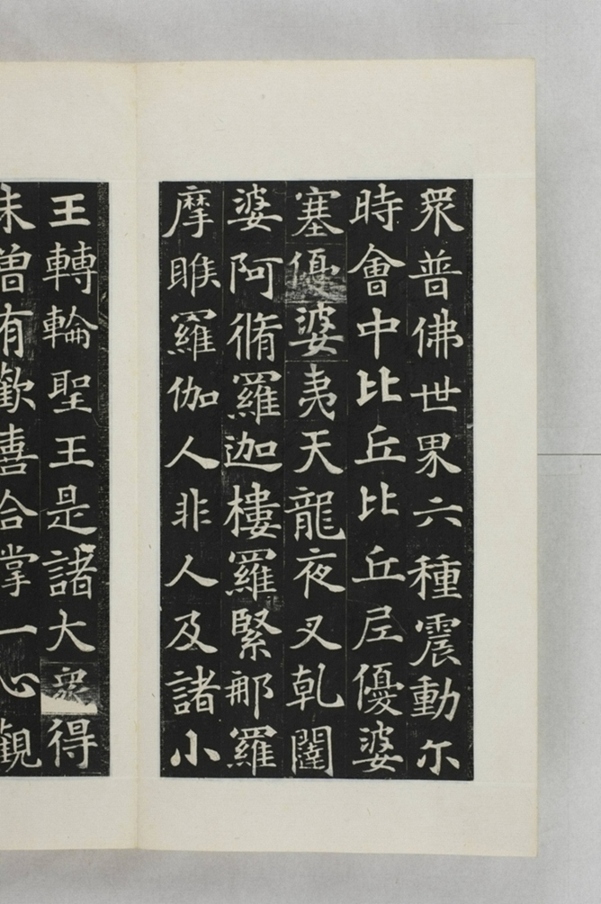 衆普佛世界六種震動尒
時會中比丘比丘尼優婆
塞優婆夷天龍夜叉乹闥
婆阿脩羅迦樓羅緊那羅
摩睺羅伽人非人及諸小
王轉輪聖王是諸大衆得
未曽有歡喜合掌一心觀